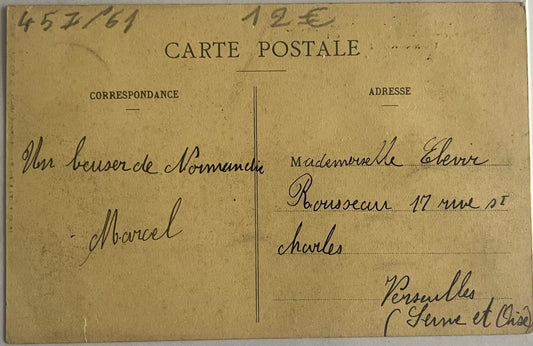 457/61
12€
CARTE POSTALE
CORRESPONDANCE
ADRESSE
Un beuser de Normandie
Marcel
Mademoiselle Elevir
Rousseau 17 rue St
charles
Versailles
(Seine et Oise)